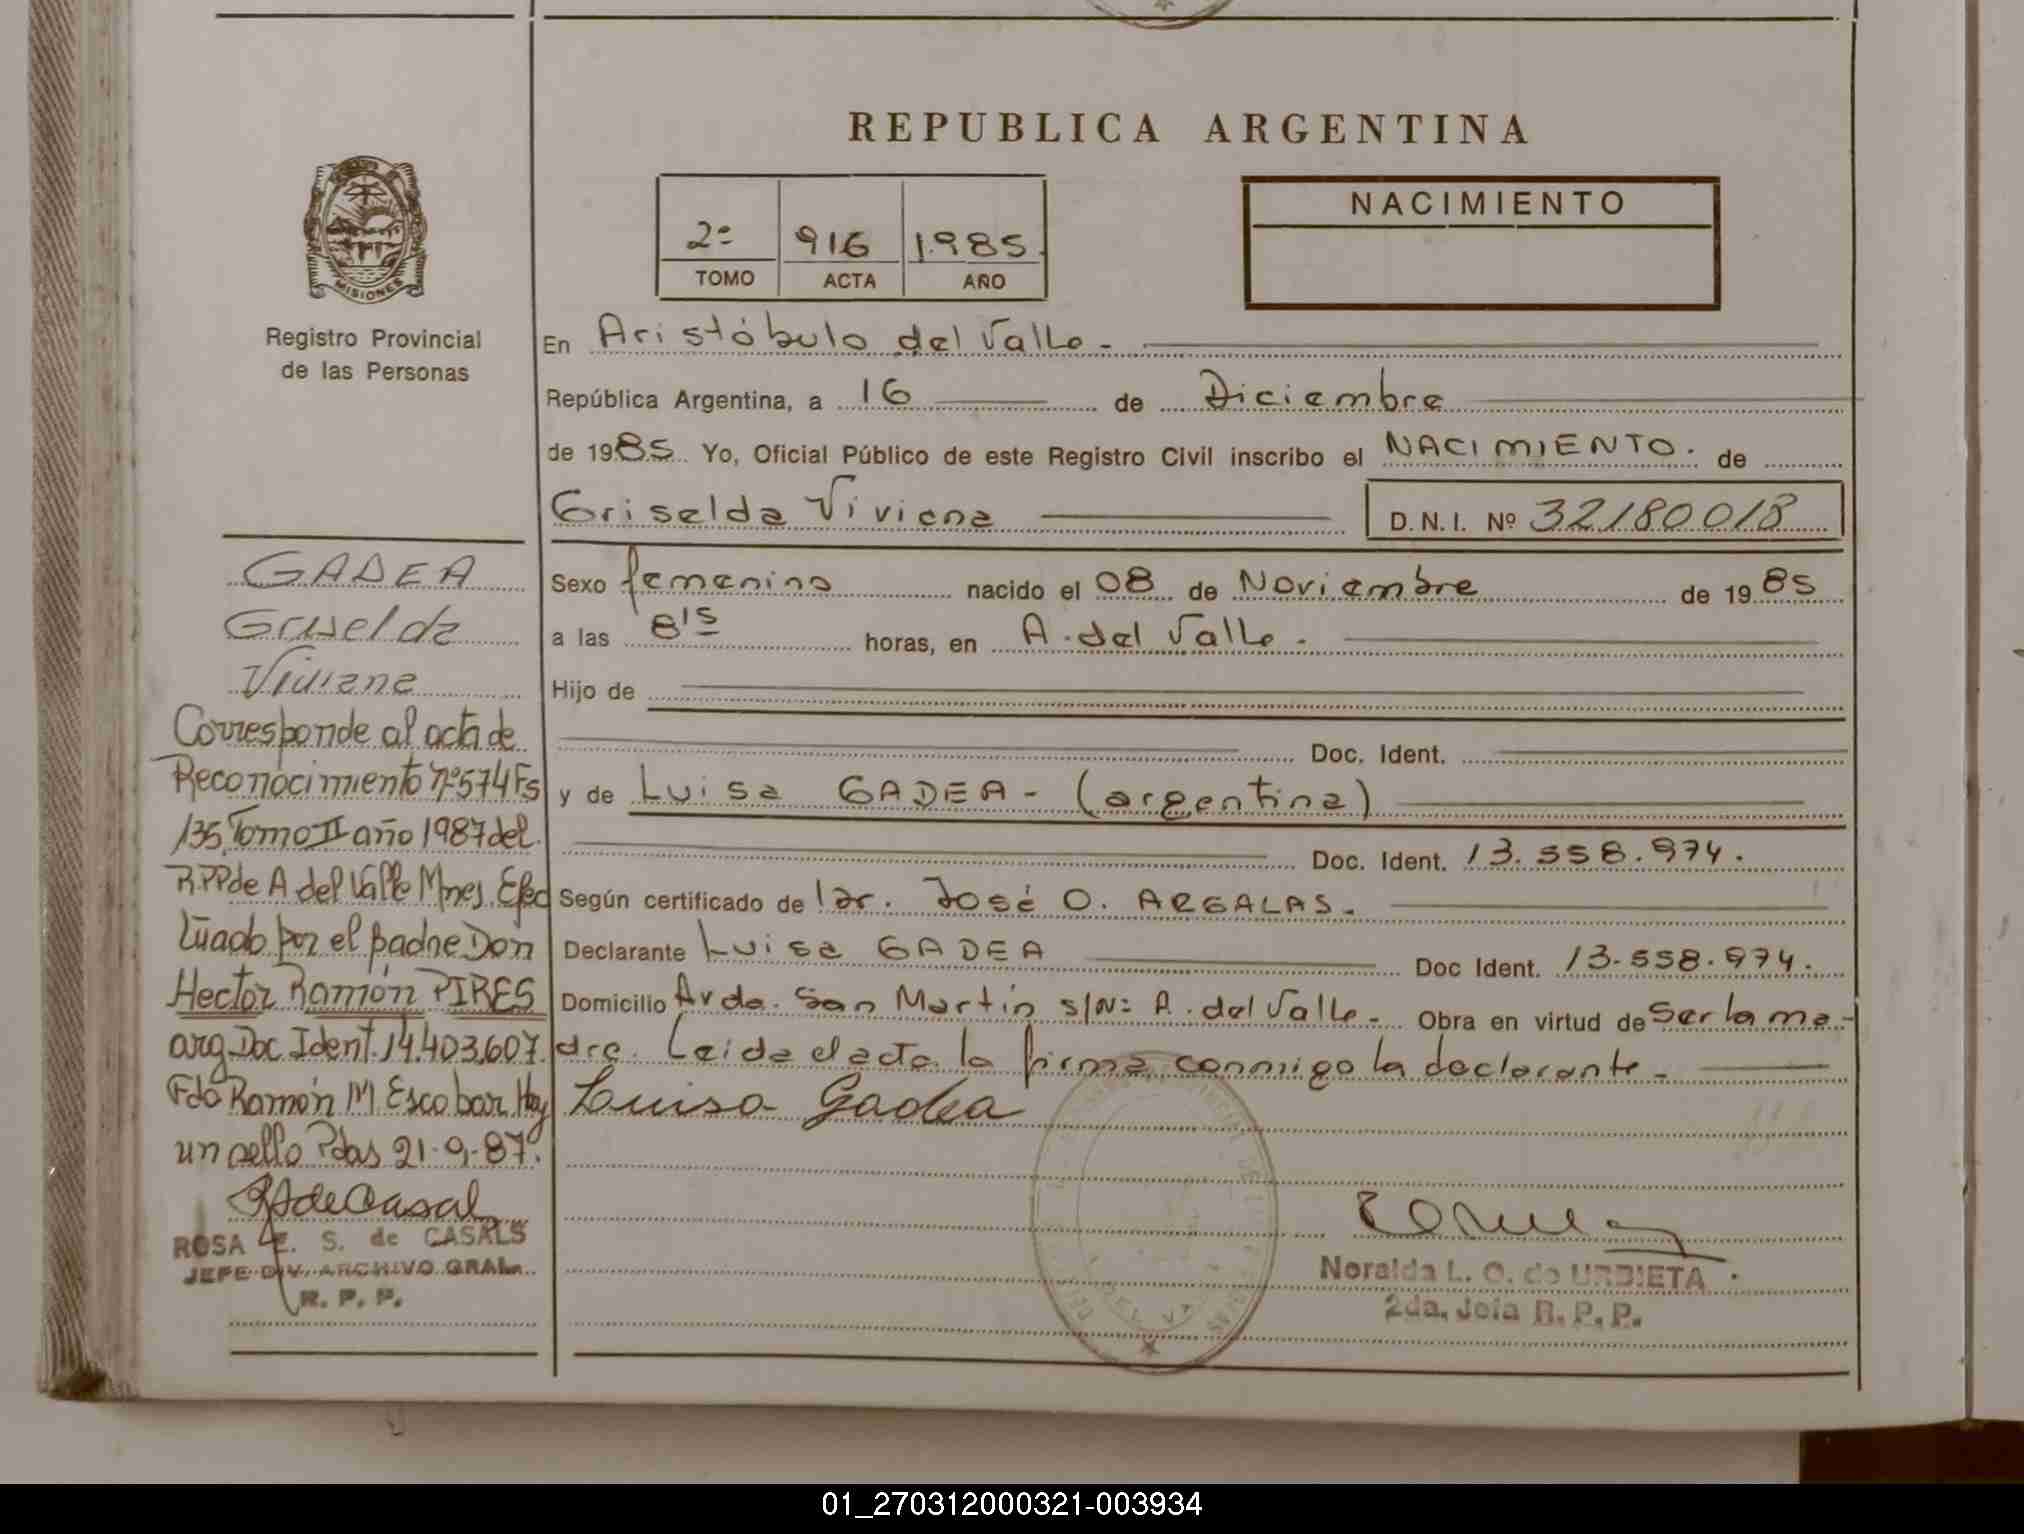 REPUBLICA ARGENTINA
NACIMIENTO
2º 916 1.985.
TOMO ACTA AÑO
MISIONES
Registro Provincial
de las Personas
En Aristóbulo del Valle.-
República Argentina, a 16 de Diciembre
de 1985. Yo, Oficial Público de este Registro Civil inscribo el NACIMIENTO. de
Griselda Viviana D.N.I. Nº 32180018
Sexo femenino nacido el 08 de Noviembre de 1985
a las 8 15 horas, en A. del Valle.
Hijo de
Doc. Ident.
y de Luisa GADEA - (argentina)
Doc. Ident. 13.558.974.
Según certificado de José O. ARGALAS.
Declarante Luisa GADEA Doc Ident. 13.558.974.
Domicilio Avda. San Martín s/Nº A. del Valle.- Obra en virtud de Ser la ma-
dre. Leida el acta la firma conmigo la declarante.-
Luisa Gadea
Noralda L. O. de URBIETA
2da. Jefa R. P. P.
GADEA
Griselda
Viviana
Corresponde al acta de
Reconocimiento Nº 574 Fs
135, Tomo II año 1987 del
R.P.P de A del Valle Mnes. Efec
tuado por el padre Don
Hector Ramón PIRES
arg Doc. Ident. 14.403.607.
Fdo Ramón M Escobar. Hay
un sello Pdas 21-9-87.
ROSA E. S. de CASALS
JEFE DIV. ARCHIVO GRAL.
R. P. P.
01_270312000321-003934